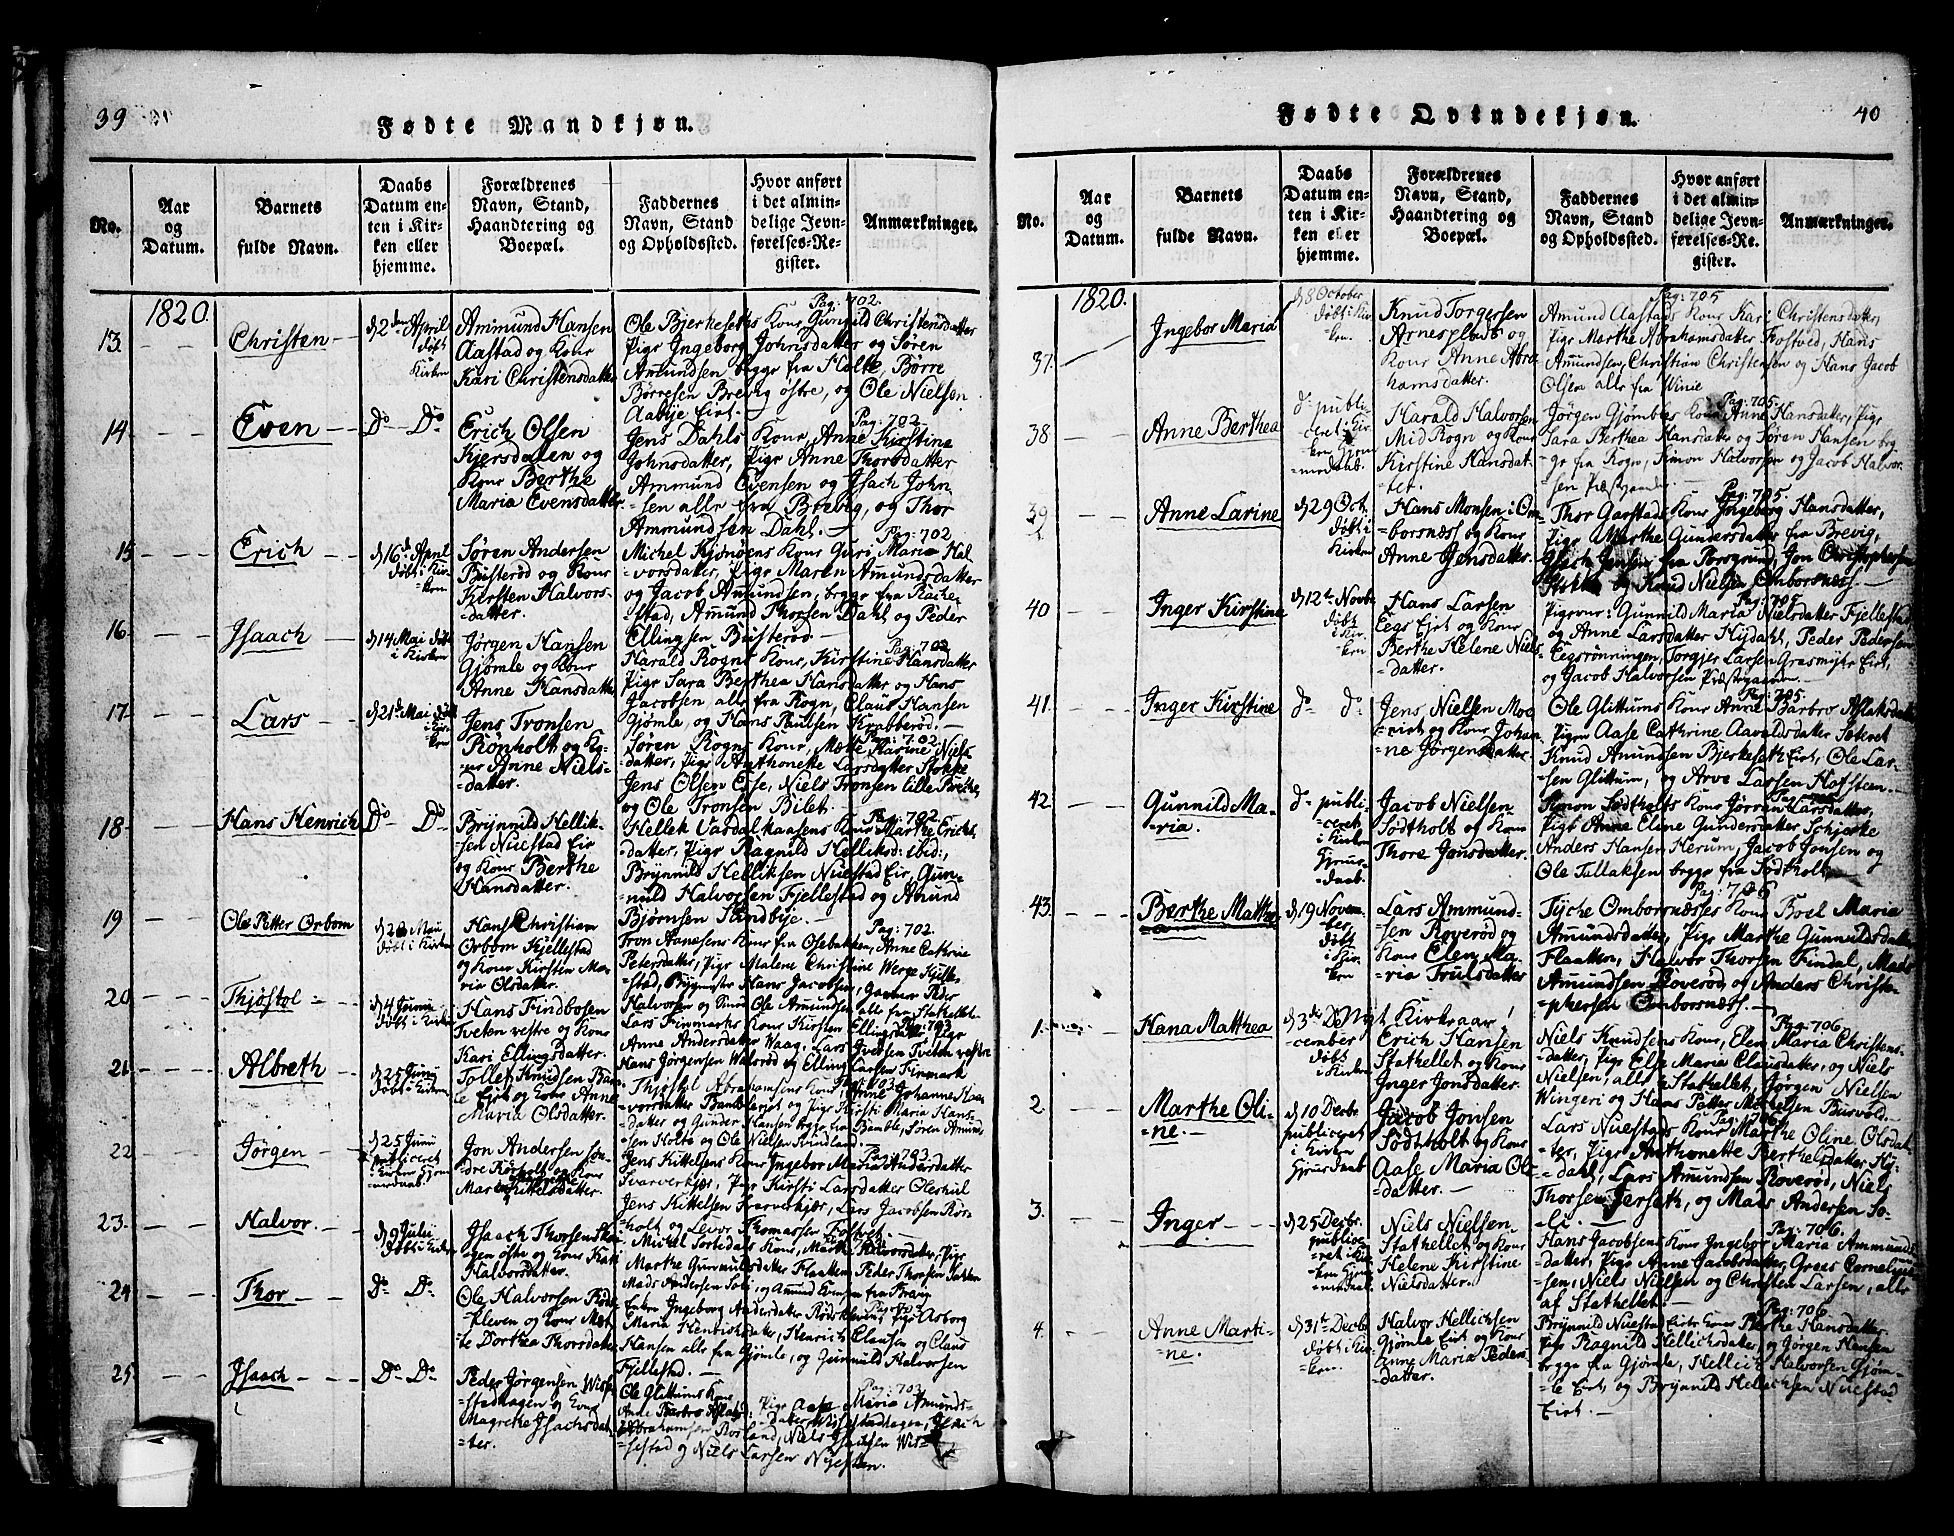 39
Fødte Mandkjøn.
No.
Aar
og
Datum.
Barnets
fulde Navn.
Daabs
Datum en-
ten i Kir-
ken eller
hjemme.
Forældrenes
Navn, Stand,
Haandtering og
Boepæl.
Faddernes
Navn, Stand
og Opholdssted.
Hvor anført
i det almin-
delige Jevn-
førelses-Re-
gister.
Anmærkninger.
1820.
13.
Christen
d 2den April
døbt i
Kirken
Ammund Hansen
Aastad og Kone
Kari Christensdatter
Pag: 702.
Ole Bjerkesets Kone Gunild Christensdatter
Pige Ingeborg Johnsdatter og Søren
Amundsen begge fra Holte, Børre
Børresen Brevig østre, og Ole Nielsen
Aabye Eiet.
14
Even
Do Do
Erich Olsen
Kjersdalen og
Kone Berthe
Maria Evensdatter
Pag: 702.
Jens Dahls Kone, Anne Kirstine
Johnsdatter, Pige Anne Thorsdatter
Ammund Evensen og Isach John-
sen alle fra Brevig, og Thor
Ammundsen Dahl.
15
Erich
d 16d April
døbt i Kir-
ken
Søren Andersen
Busterød og Kone
Kirsten Halvors-
datter.
Pag: 702
Michel Kjønøens Kone Guri Maria Hal-
vorsdatter, Pige Maren Amundsdatter
og Jacob Amundsen, begge fra Rache-
stad, Amund Thorsen Dahl og Peder
Ellingsen Busterød.
16
Isaach
d 14 Mai døbt
i Kirken
Jørgen Hansen
Gjømle og Kone
Anne Hansdatter
Pag: 702
Harald Rogns Kone, Kirstine Hansdatter
Pige Sara Berthea Hansdatter og Hans
Jacobsen alle fra Rogn, Claus Hansen
Gjømle, og Hans Paulsen Knabberød.
17
Lars
d 21de Mai døbt
i Kir-
ken
Jens Tronsen
Rønholt og Ko-
ne Anne Niels-
datter.
Pag: 702
Søren Rogns Kone, Mette Karine Niels-
datter, Pige Anthonette Larsdatter Stokke
Jens Olsen Ese, Niels Tronsen lille Brethe,
og Ole Tronsen Bilet.
18
Hans Henrich
Do Do
Brynnild Hellik-
sen Nuestad Eie
og Kone Berthe
Hansdatter.
Pag: 702
Hellek Vasdalkaasens Kone Marthe Erichs-
datter, Pige Ragnild Helliksd: ibid:,
Brynnild Helliksen Nuestad Eie, Gun-
nuld Halvorsen Fjellestad og Amund
Bjørnsen Sundbye.
19
Ole Petter Orbom
Mai
døbt i Kirken
Hans Christian
Orbom Kjellestad
og Kone Kirsten Ma-
ria Olsdatter.
Pag: 702.
Tron Aanesens Kone fra Osebakken, Anne Cathrie
Petersdatter, Pige Malene Christine Werge Kjelle-
stad, Bygmester Hans Jacobsen,
20
Thjøstol
d 4 Junii
døbt i Kirken
Hans Findbosen
Tveten vestre og Kone
Kari Ellingsdatter.
Pag: 703
Lars Finmarks Kone Kirsten Ellingsdatter Pige
Anne Andersdatter Waag, Lars Iversen Tveten vestre
Hans Jørgensen Walsrød og Elling Larsen Finmark
21
Albreth
d 25 Juni
døbt i Kirken
Tollef Knudsen Bam-
le Eiet og Kone Anne
Maria Olsdatter.
Pag: 703
Thjøstol Abrahamsens Kone Anne Johanne Haa-
vorsdatter Bamble
22
Jørgen
d 25 Juni
publiceret
Jon Andersen søn-
dre Rørholt og Kone
Maren Kittelsdatter.
Pag: 703.
Jens Kittelsens Kone Ingebor Maria Andersdatter
Svarverkjær, Pige Kirsti Larsdatter Oleshul
Jens Kittelsen Svarverkjær, Lars Jacobsen Rør-
holt og Levor Thomassen
23.
Halvor.
d 9 Julii
døbt i Kirken
Isaach Thorsen
østre og Kone Kari
Halvorsdatter.
Michel Kone, Marthe Halvorsdatter, Pige
Marthe Gunnuldsdatter Flaatten, Peder Thorsen
Mads Andersen
24
Thor
Do Do
Ole Halvorsen
kleven og Kone Met-
te Dorthea Thorsdatter
Enken Ingeborg Andersdatter Rødskleven, Pige Asborg
Maria Henrichsdatter, Henrich Clausen og Claus
Hansen alle fra Gjømle, og Gunnuld Halvorsen
Fjellestad.
25
Isaach
Do Do
Peder Jørgensen Wisse-
stadhagen og Kone
Magrethe Isachsdat-
ter.
Pag: 703
Ole Glittums Kone
Niels Larsen
40
Fødte Qvindekjøn.
No.
Aar
og
Datum.
Barnets
fulde Navn.
Daabs
Datum en-
ten i Kir-
ken eller
hjemme.
Forældrenes
Navn, Stand,
Haandtering og
Boepæl.
Faddernes
Navn, Stand
og Opholdssted.
Hvor anført
i det almin-
delige Jevn-
førelses-Re-
gister.
Anmærkninger.
1820.
37.
Ingebor Maria
d 8 October
døbt i Kir-
ken.
Knud Torgersen
Arnesplads og
Kone Anne Abra
hamsdatter.
Pag: 705
Amund Aastads Kone Kari Christensdatter,
Pige Marthe Abrahamsdatter Fostved, Hans
Amundsen, Christian Christensen og Hans Jacob
Olsen alle fra Winie
38
Anne Berthea
do publi-
ceret i Kir-
ken Hjem-
medaab.
Harald Halvorsen
Mid Rogn og Kone
Kirstine Hansdat-
ter.
Pag: 705.
Jørgen Gjømbles Kone Anne Hansdatter, Pige
Sara Berthea Hansdatter og Søren Hansen beg-
ge fra Rogn, Simon Halvorsen og Jacob Halvor-
sen Præstgaarden
39
Anne Larine
d 29 Oct.
døbt i
Kirken
Hans Monsen i Om-
borsnæs og Kone
Anne Jonsdatter.
Pag: 705.
Thor Gaastads Kone Ingeborg Hansdatter,
Pige Marthe Gundersdatter fra Brevig,
Isach Jensen fra Porsgrund, Jon Christophersen
Stokke og Knud Nielsen Omborsnæs.
40
Inger Kirstine
d 12te Novbr
døbt
i Kir-
ken.
Hans Larsen
Eegs Eiet og Kone
Berthe Helene Niels-
datter.
Pag: 705
Pigerne: Gunnild Maria Nielsdatter Fjellestad
og Anne Larsdatter Hydahl, Peder Pedersen
Eegsrønningen, Torgjer Larsen Grasmyr Eiet,
og Jacob Halvorsen Præstgaarden.
41.
Inger Kirstine
do do
Jens Nielsen Moe
Eiet og Kone Johan-
ne Jørgensdatter.
Pag: 705.
Ole Glittums Kone Anne Barbro Aslaksdatter
Pigen Aase Cathrine Aavaldsdatter
Knud Amundsen Bjerkeseth Eiet, Ole Lar-
sen Glittum, og Arve Larsen Hafsteen.
42
Gunnild Ma-
ria.
do publi-
ceret
i Kirken
Hjem-
daab.
Jacob Nielsen
Fødtholt og Kone
Thore Jonsdatter.
Simon Fødtholts Kone Jørren Larsdatter,
Pige Anne Eline Gundersdatter Schjerke
Anders Hansen Herum, Jacob Jonsen og
Ole Tellaksen begge fra Fødtholt.
43.
Berthe Mathea
d 19 Novem-
ber
døbt
i Kir-
ken
Lars Ammund-
sen Roverød og
Kone Elen Ma-
ria Truelsdatter
Pag: 706
Tyche Omborsnæses Kone Boel Maria
Amundsdatter, Pige Marthe Gunnuldsdatter
Flaatten, Halvor Thorsen Findal, Mads
Amundsen Roverød og Anders Christo-
phersen Omborsnæs.
1.
Hana Matthea
d 3de De-
cember
døbt
i Kirken
Nyt Kirkeaar!
Erich Hansen
Stathellet og Kone
Inger Jonsdatter.
Pag: 706
Niels Knudsens Kone, Elen Maria Christens-
datter, Pige Else Maria Clausdatter, og Niels
Nielsen, alle i Stathellet, Jørgen Nielsen
Wingeri og Hans Petter Mortelsen Busvold.
2.
Marthe Oli-
ne.
d 10 Decbr
publiceret
i Kirken
Hjemdaab
Jacob Jonsen
Fødtholt og Kone
Aase Maria Ole
datter.
Pag: 706
Lars Nuestads Kone Marthe Oline Olsdat-
ter, Pige Anthonette Berthesdatter Hy-
dahl, Lars Amundsen Roverød, Niels
Thorsen Herseth, og Mads Andersen So-
li.
3.
Inger
d 25 Decbr.
publice-
ret i Kir-
ken Hjem-
medaab.
Niels Nielsen
Stathellet og Kone
Helene Kirstine
Nielsdatter.
Pag: 706.
Hans Jacobsens Kone Ingebor Maria Ammunds-
datter, Pige Anne Jacobsdatter, Græs Corneliu-
sen, Niels Nielsen og Christen Larsen, alle
af Stathellet.
4.
Anne Marti-
ne.
d 31te Decbr
døbt i Kir-
ken.
Halvor Hellichsen
Gjømle Eiet og Kone
Anne Maria Peders
datter.
Pag: 706
Brynnild Nuestad Eiets Kone Berthe Hansdatter
Pige Ragnild Hellichsdatter, og Jørgen Hansen
begge fra Gjømle, Hellich Halvorsen Gjøm-
le Eiet, og Brynnild Hellichsen Nuestad
Eiet.